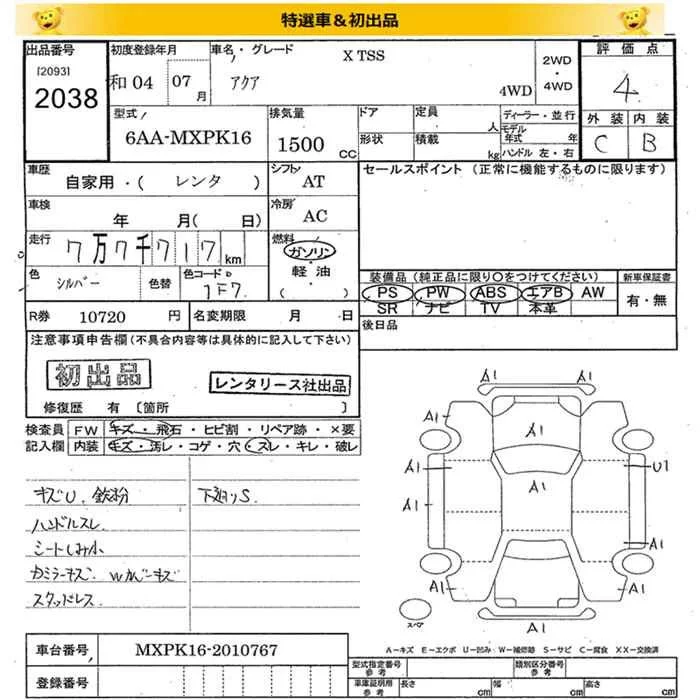 特選車＆初出品
出品番号
[2093]
2038
初度登録年月
和04 07月
車名・グレード
X TSS
アクア
4WD
2WD・4WD
評価点
4
外装 内装
C B
型式
6AA-MXPK16
排気量
1500 CC
ドア
形状
定員 人
積載 kg
ディーラー・並行
モデル年式 年
ハンドル 左・右
車歴
自家用・( レンタ )
シフト
AT
セールスポイント (正常に機能するものに限ります)
車検
年 月( 日)
冷房
AC
走行
7万7千717km
燃料
ガソリン・軽・油・( )
色
シルバー
色替
色コード
1F7
装備品 (純正品に限り○をつけてください)
PS PW ABS エアB AW
SR ナビ TV 本革
新車保証書
有・無
R券 10720 円
名変期限 月 日
後日品
注意事項申告欄 (不具合内容等は具体的に記入して下さい)
初出品
レンタリース社出品
修復歴 有 〔箇所 〕
検査員記入欄
FW キズ・飛石・ヒビ割・リペア跡・×要
内装 キズ・汚レ・コゲ・穴・スレ・キレ・破レ
キズU. 鉄粉
下廻りS.
ハンドルスレ
シートしみ小
カミラーキズ.
スタッドレス
A1 A1
A1 A1
A1
A1 U1
A1
A1
A1
A1 A1
A1
スペア
A－キズ E－エクボ U－凹み W－補修跡 S－サビ C－腐食 XX－交換済
車台番号
MXPK16-2010767
登録番号
型式指定番号 参考
類別区分番号 参考
車庫証明用 参考
長さ cm
幅 cm
高さ cm